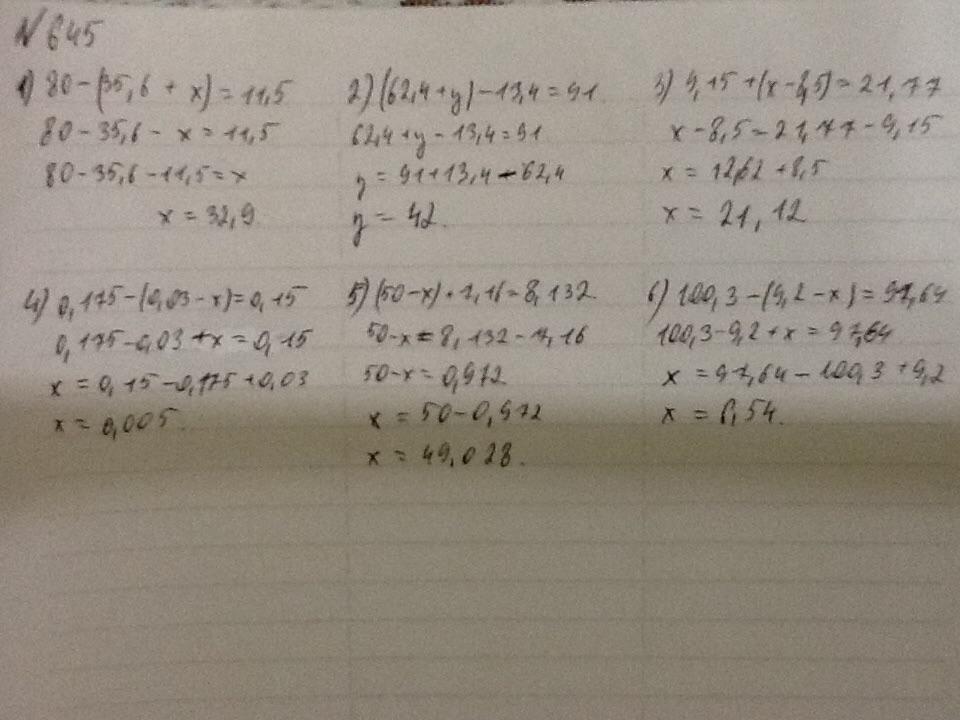 N 645
1) 80-(35,6 + x)=11,5
80-35,6 - x=11,5
80-35,6-11,5=x
x = 32,9.
2) (62,4+y)-13,4=91
62,4+y-13,4=91
y = 91+13,4-62,4
y = 42.
3) 9,15+(x-8,5)=21,77
x-8,5=21,77-9,15
x = 12,62 +8,5
x = 21,12
4) 0,175-(0,03-x)=0,15
0,175-0,03+x=0,15
x = 0,15-0,175+0,03
x = 0,005.
5) (50-x)+7,16=8,132
50-x=8,132-7,16
50-x=0,972
x = 50-0,972
x = 49,028.
6) 100,3-(9,2-x)=97,64
100,3-9,2+x=97,64
x = 97,64-100,3+9,2
x = 6,54.